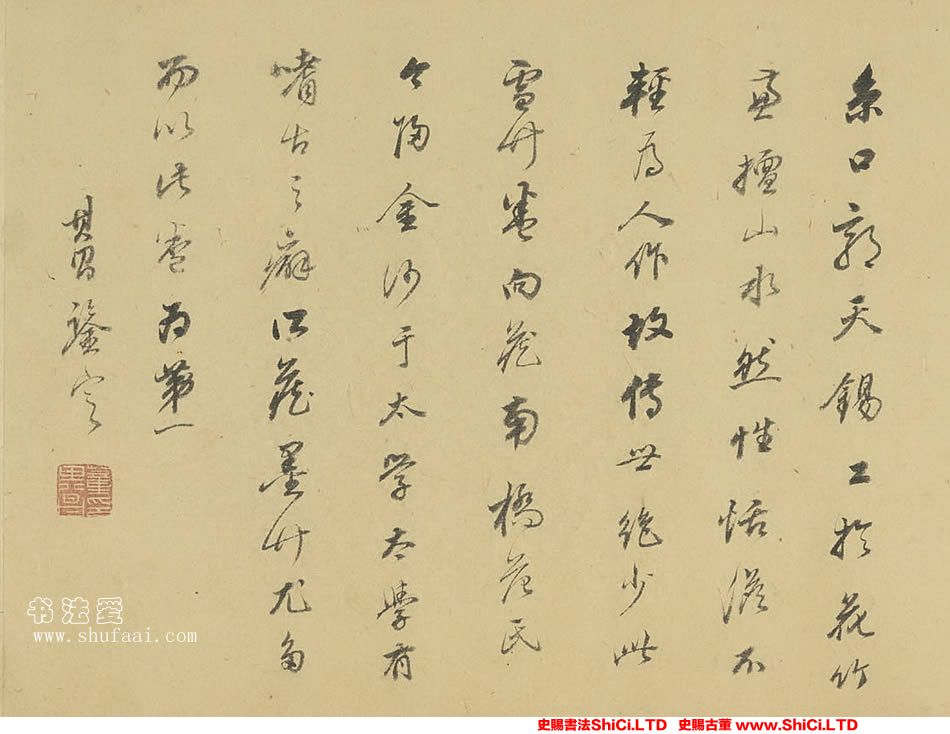 京口郭天錫工於花竹
兼擅山水然性恬澹不
輕爲人作故傳世絶少此
雪竹卷向藏南橋范氏
今歸金沙于太学太學有
嗜古之癖所藏墨竹尤多
而以此卷为第一
其昌鑒定
董其昌印
书法爱
www.shufaai.com
史賜書法ShiCi.LTD 史賜古董 www.ShiCi.LTD